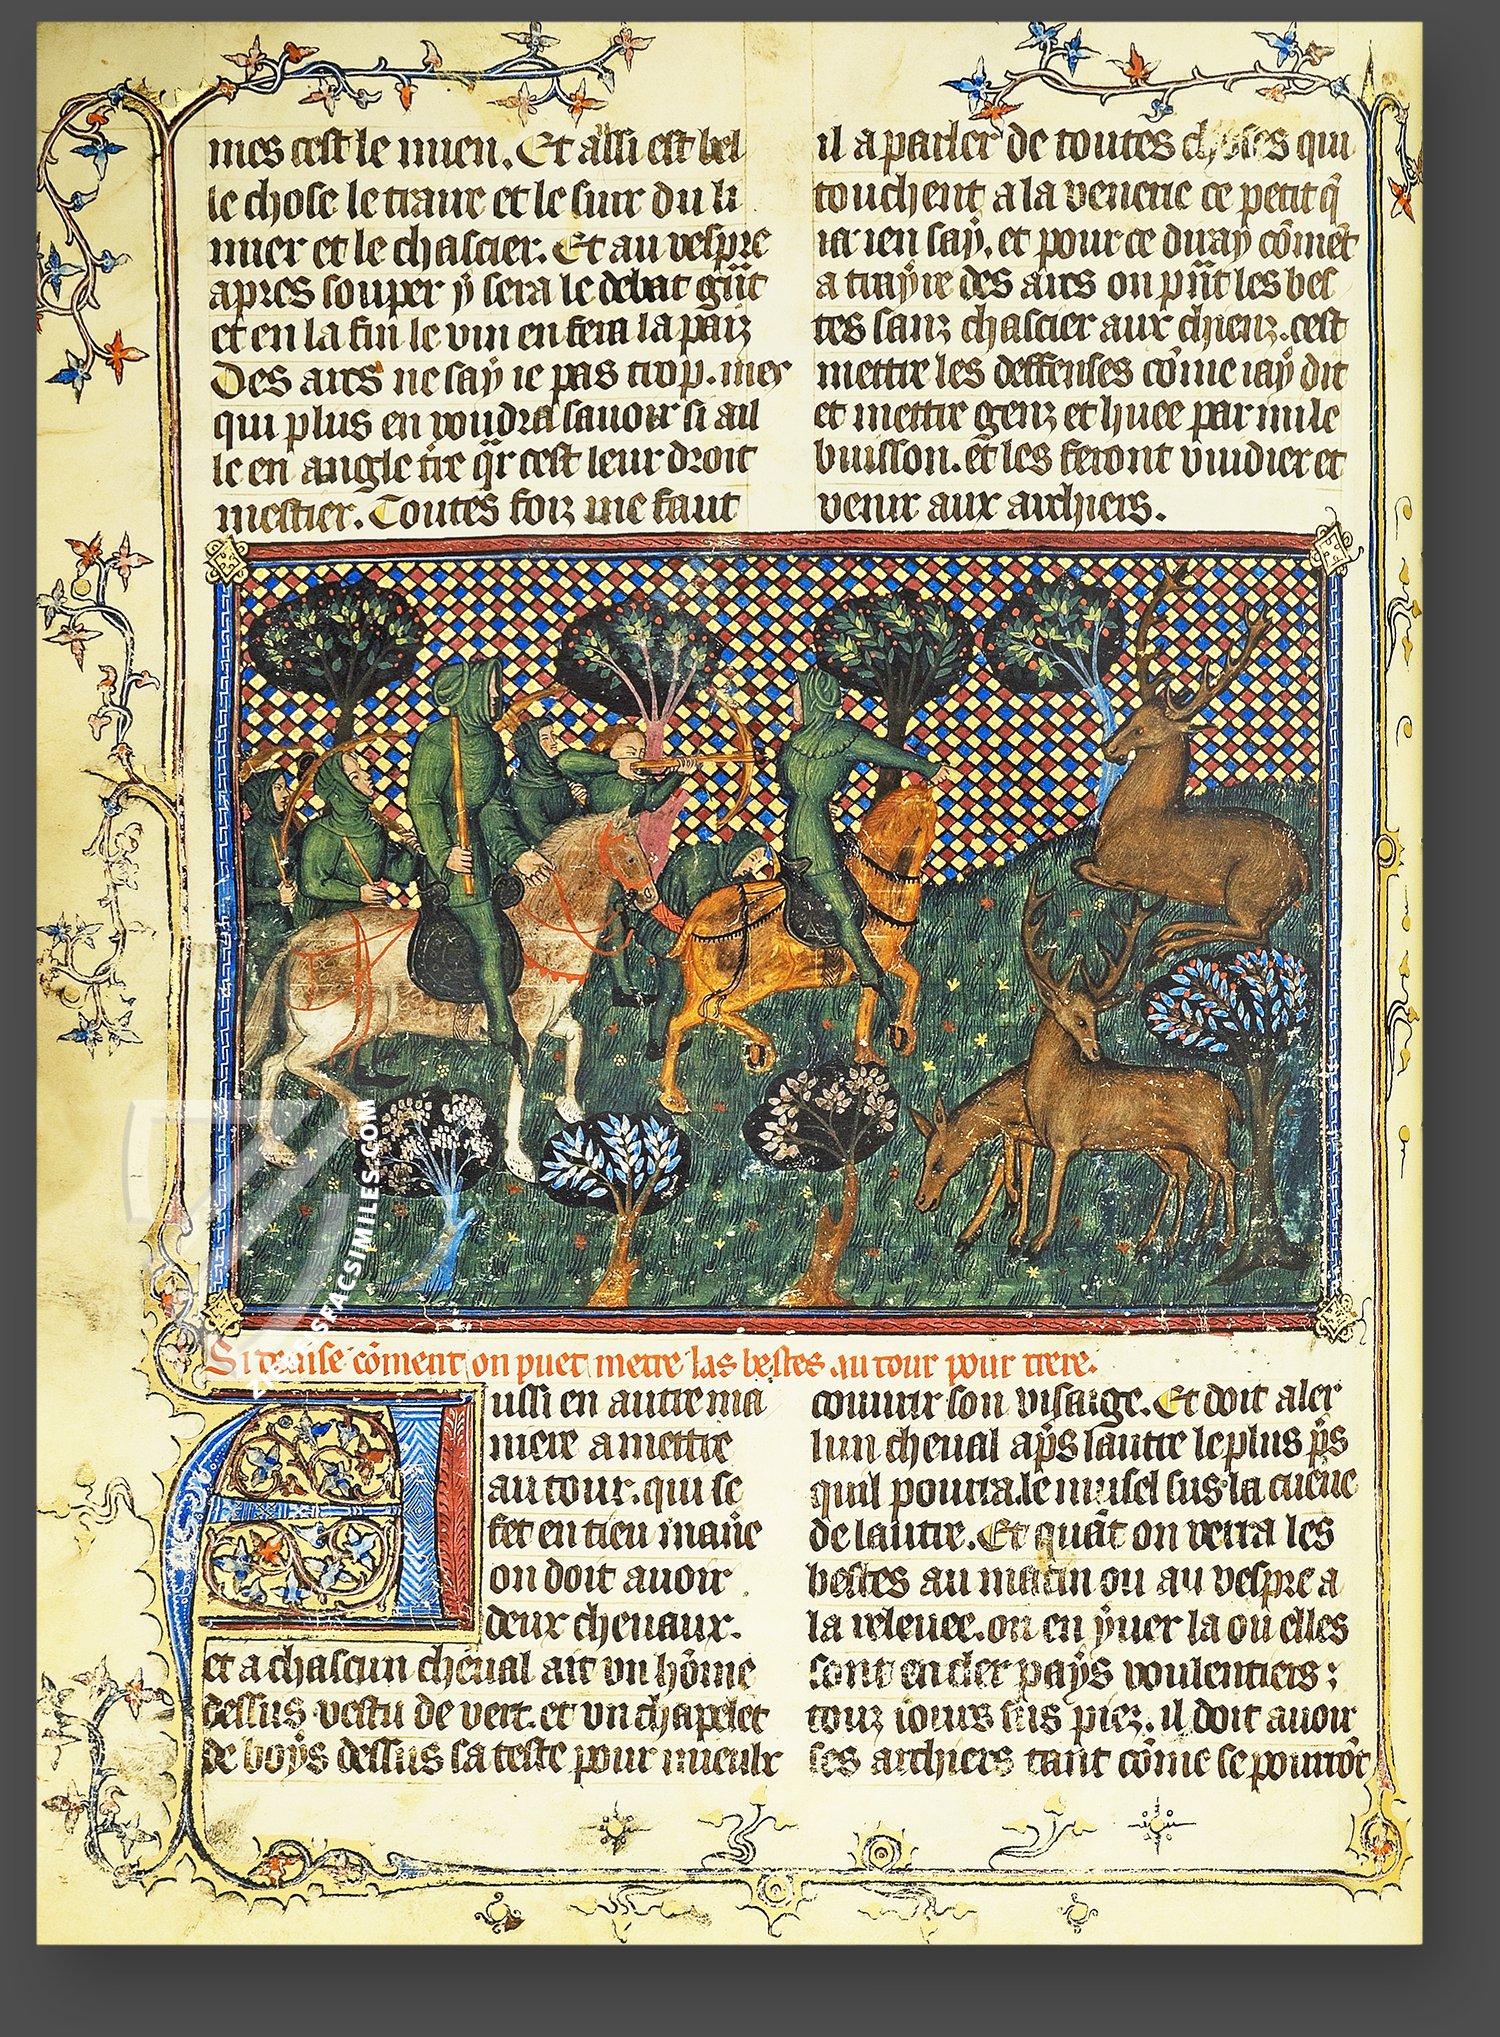 mes cest le mien. Et aussi est bel
le chose le traire et le suir du li
mier et le chascier. Et au vespre
apres souper y sera le debat grāt
et en la fin le vin en fera la paiz
Des arcs ne say ie pas trop. mes
qui plus en voudra sauoir si ail
le en angleterre qr cest leur droit
mestier. Toutes foiz me faut
il a parler de toutes choses qui
touchent a la venerie ce petit q̄
ie ien say. et pour ce diray cōmēt
a traire des arcs on prēt les bes
tes sanz chascier aux chienz. cest
mettre les deffenses cōme iay dit
et mettre genz et huee parmi le
buisson. et les feront vuidier et
venir aux archiers.
Si deuise cōment on puet metre las bestes au tour pour trere.
Aussi en autre ma
niere a mettre
au tour. qui se
fet en tieu manie
on doit auoir
deux cheuaux.
et a chascun cheual ait vn hōme
dessus vestu de vert. et vn chapelet
de boys dessus sa teste pour mieulx
couurir son visaige. Et doit aler
lun cheual ap̄s lautre le plus p̄s
quil pourra. le musel sus la cueue
de lautre. Et quāt on verra les
bestes au matin ou au vespre a
la releuee. ou en yuer la ou elles
sont en cler pays voulentiers
touz iours sus piez. il doit auoir
ses archiers tant cōme se pourrōt
ZIEREISFACSIMILES.COM